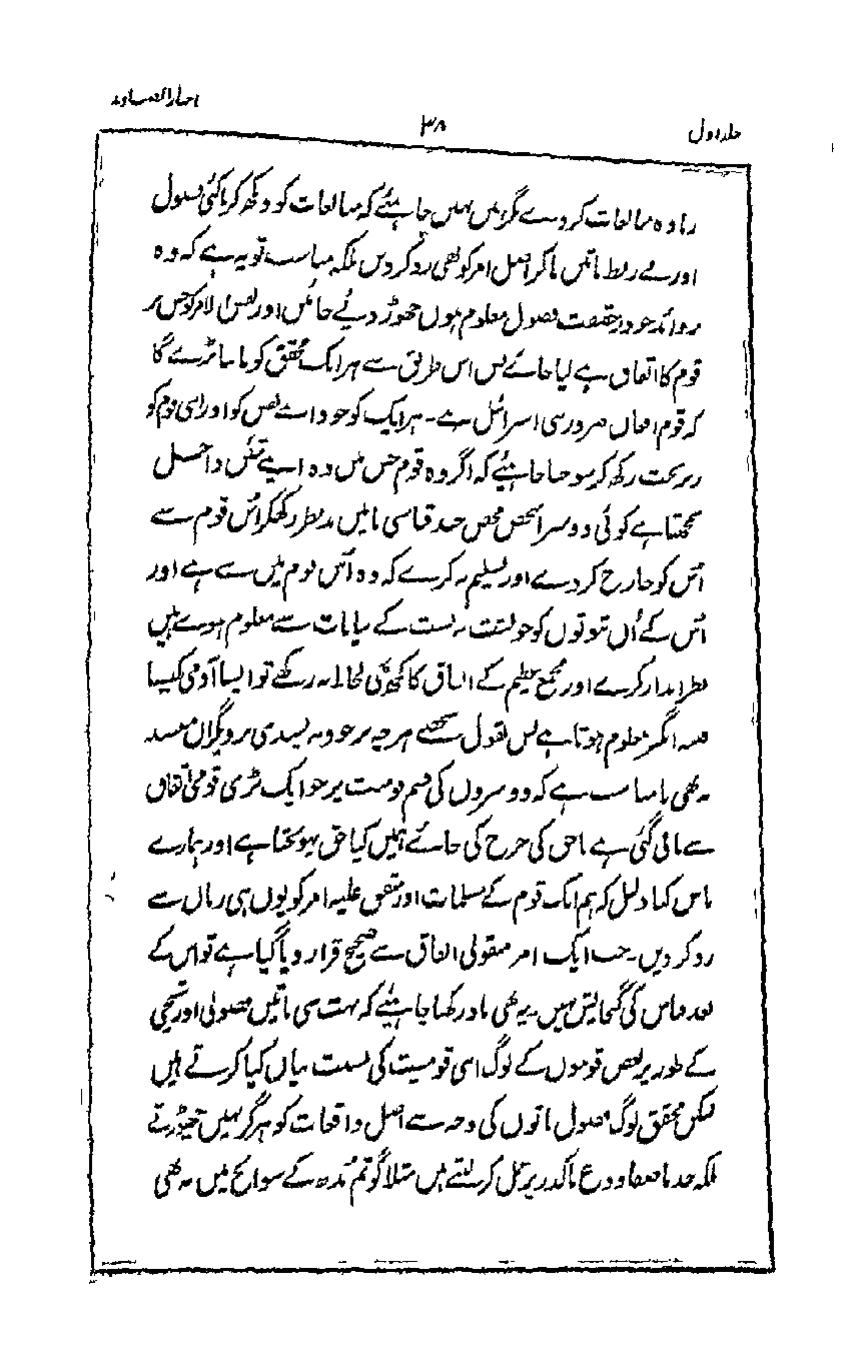 جلد اول
۳۸
اخبار الصنادید
زیادہ مبالغات کردے مگر ہمیں نہیں چاہئے کہ مبالغات کو دیکھ کر یا کئی فضول
اور بے ربط باتیں پاکر اصل امر کو بھی رد کردیں بلکہ مناسب تو یہ ہے کہ وہ
زوائد جو درحقیقت فضول معلوم ہوں چھوڑ دئے جائیں اور نفس الامر کو جس پر
قوم کا اتفاق ہے لیا جائے پس اس طریق سے ہر ایک محقق کو ماننا پڑے گا
کہ قوم افغان ضرور بنی اسرائیل ہے۔ ہر ایک کو خود اپنے نفس کو اور اپنی قوم کو
زیر بحث رکھ کر سوچنا چاہئیے کہ اگر وہ قوم جس میں وہ اپنے تئیں داخل
سمجھتا ہے کوئی دوسرا شخص محض چند قیاسی باتیں مدنظر رکھکر اُس قوم سے
اُس کو خارج کردے اور تسلیم نہ کرے کہ وہ اُس قوم میں سے ہے اور
اُس کے اُن ثبوتوں کو جو پشت بہ پشت کے بیانات سے معلوم ہوے ہیں
نظر انداز کرے اور مجمع عظیم کے اتفاق کا کچھ بھی لحاظ نہ رکھے تو ایسا آدمی کیسا
فتنہ انگیز معلوم ہوتا ہے پس بقول سمجھے ہرچہ برخود نہ پسندی بردیگراں مپسند
یہ بھی نامناسب ہے کہ دوسروں کی قسم قومیت پر جو ایک بڑی قومی اتفاق
سے مانی گئی ہے ناحق کی جرح کی جائے ہمیں کیا حق پہونچتا ہے اور ہمارے
پاس کیا دلیل کہ ہم ایک قوم کے مسلمات اور متفق علیہ امر کو یوں ہی زبان سے
رد کردیں۔ جب ایک امر منقولی اتفاق سے صحیح قرار دیا گیا ہے تو اس کے
بعد قیاس کی گنجایش نہیں۔ یہ بھی یاد رکھنا چاہئیے کہ بہت سی باتیں فضولی اور شیخی
کے طور پر بعض قوموں کے لوگ اپنی قومیت کی نسبت بیان کیا کرتے ہیں
لیکن محقق لوگ فضول باتوں کی وجہ سے اصل واقعات کو ہرگز نہیں چھوڑتے
بلکہ خذ ما صفا و دع ما کدر پر عمل کرلیتے ہیں مثلاً گوتم بُدھ کے سوانح میں یہ بھی